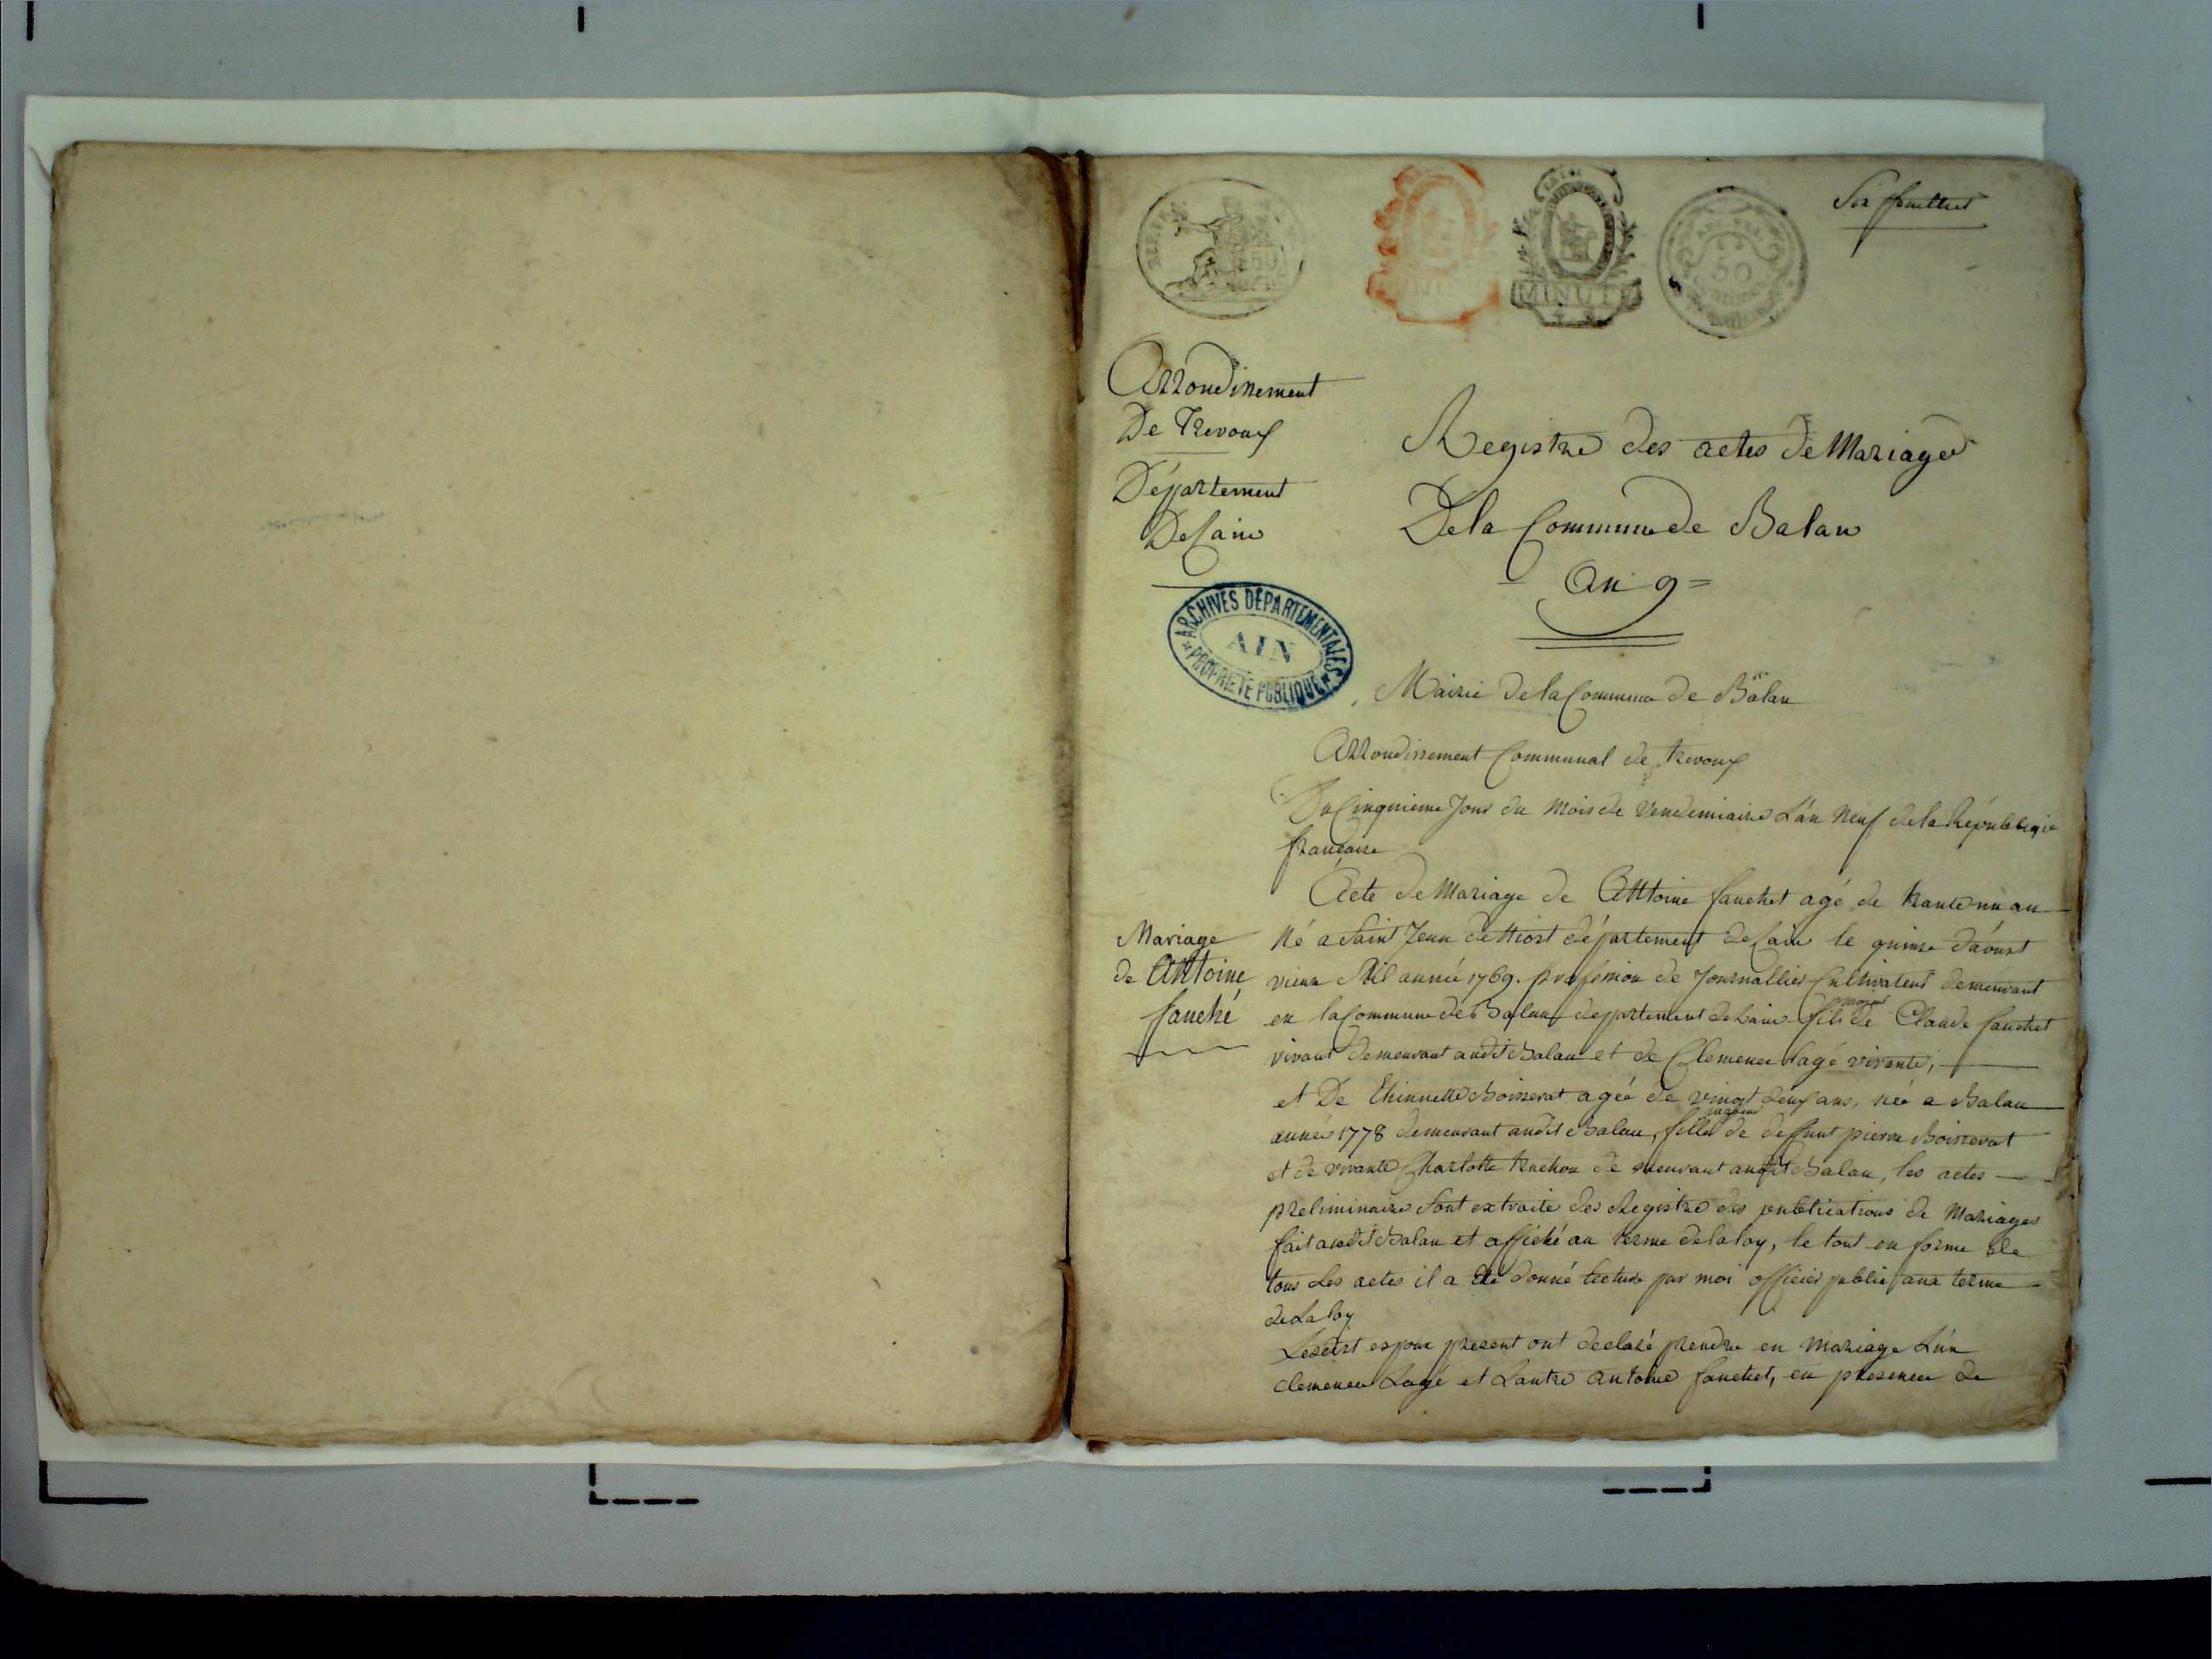 Six feuillets
MINUTE
50
Arrondissement
De Trevoux
Département
De Lain
Registre des actes de Mariage
De la Commune de Balan
An 9 =
ARCHIVES DÉPARTEMENTALES
AIN
PROPRIÉTÉ PUBLIQUE
Mairie de la Commune de Balan
Arrondissement Communal de trevoux
Du Cinquieme Jour du mois de Vendemiaire L'an Neuf de la République
francaise
Acte de Mariage de Anttoine fauchet agé de trante un an
Mariage
de Anttoine
fauché
Né a Saint Jean de Niost département de Lain le quinse d'aoust
vieux stil année 1769. profession de Journallier Cultivateur demeurant
en la Commune de Balan departement de Lain fils majeur de Claude fauchet
vivant demeurant audit Balan et de Clemence Lagé vivante,
et De Ethiennette Boisserat agée de vingt deux ans, née a Balan
année 1778 demeurant audit Balan, fille majeur de deffunt pierre Boisserat
et de vivante Charlotte truchon demeurant audit Balan, les actes
preliminaire sont extraite des Registre des publications de Mariages
fait audit Balan et affiché au terme de la loy, le tout en forme de
tous les actes il a été donné lecture par moi officier public aux terme
de La loy
Lesdist espoux present ont declaré prendre en mariage L'un
Clemence Lagé et Lautre antoine fauchet, en presence de